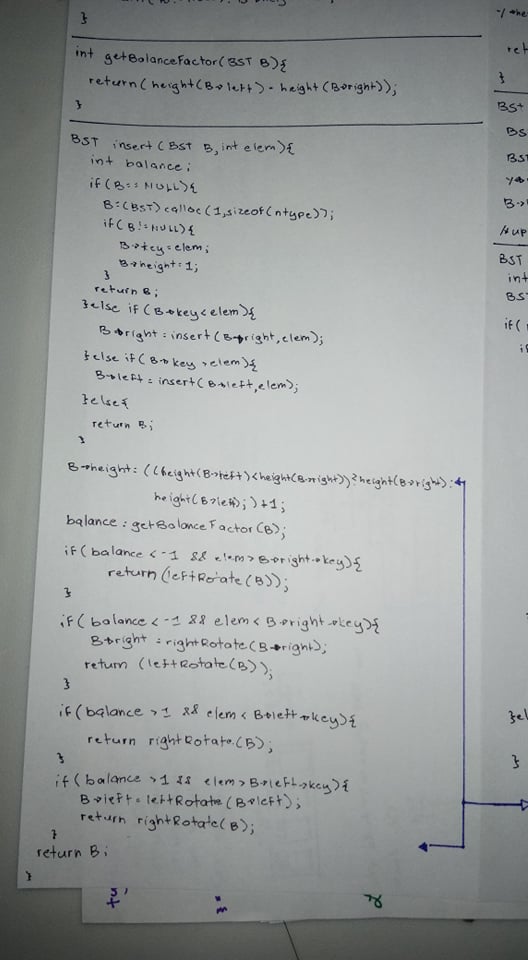 }
int getBalanceFactor(BST B){
return(height(B->left) - height(B->right));
}
BST insert(BST B, int elem){
int balance;
if(B == NULL){
B=(BST)calloc(1,sizeof(ntype));
if(B!=NULL){
B->key=elem;
B->height=1;
}
return B;
}else if(B->key<elem){
B->right=insert(B->right,elem);
}else if(B->key >elem){
B->left=insert(B->left,elem);
}else{
return B;
}
B->height= ((height(B->left)<height(B->right))?height(B->right):
height(B->left);)+1;
balance=getBalanceFactor(B);
if(balance <-1 && elem>B->right->key){
return(leftRotate(B));
}
if(balance <-1 && elem< B->right->key){
B->right =rightRotate(B->right);
return (leftRotate(B));
}
if(balance >1 && elem< B->left->key){
return rightRotate(B);
}
if(balance >1 && elem>B->left->key){
B->left=leftRotate(B->left);
return rightRotate(B);
}
return B;
}
ret
}
BST
BS
BST
B->
/*up
BST
int
BS
if(
if
}el
}